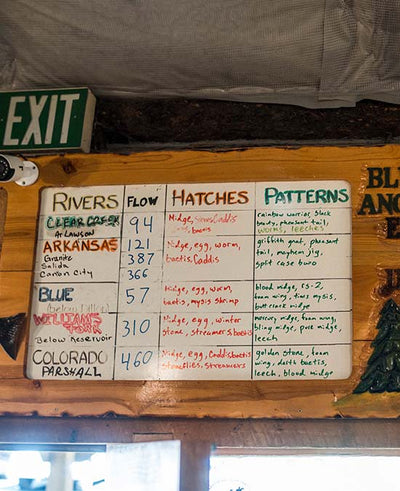 EXIT
RIVERS FLOW HATCHES PATTERNS
CLEAR CREEK 94 Midge, Caddis rainbow warrior, black
At LAWSON baetis beauty, pheasant tail,
worms, leeches
ARKANSAS 121 Midge, egg, worm, griffith gnat, pheasant
Granite 387 baetis, Caddis tail, mayhem jig,
Salida 366 split case
Canon City
BLUE 57 Midge, egg, worm, blood midge, rs-2,
baetis, mysis shrimp foam wing, tims mysis,
midge
WILLIAMS 310 Midge, egg, winter mercury midge, foam wing,
FORK stone, streamers, baetis bling midge, pure midge,
Below Reservoir leech
COLORADO 460 Midge, egg, Caddis, baetis golden stone, foam
PARSHALL stoneflies, streamers wing, darth baetis,
leech, blood midge
BL
ANG